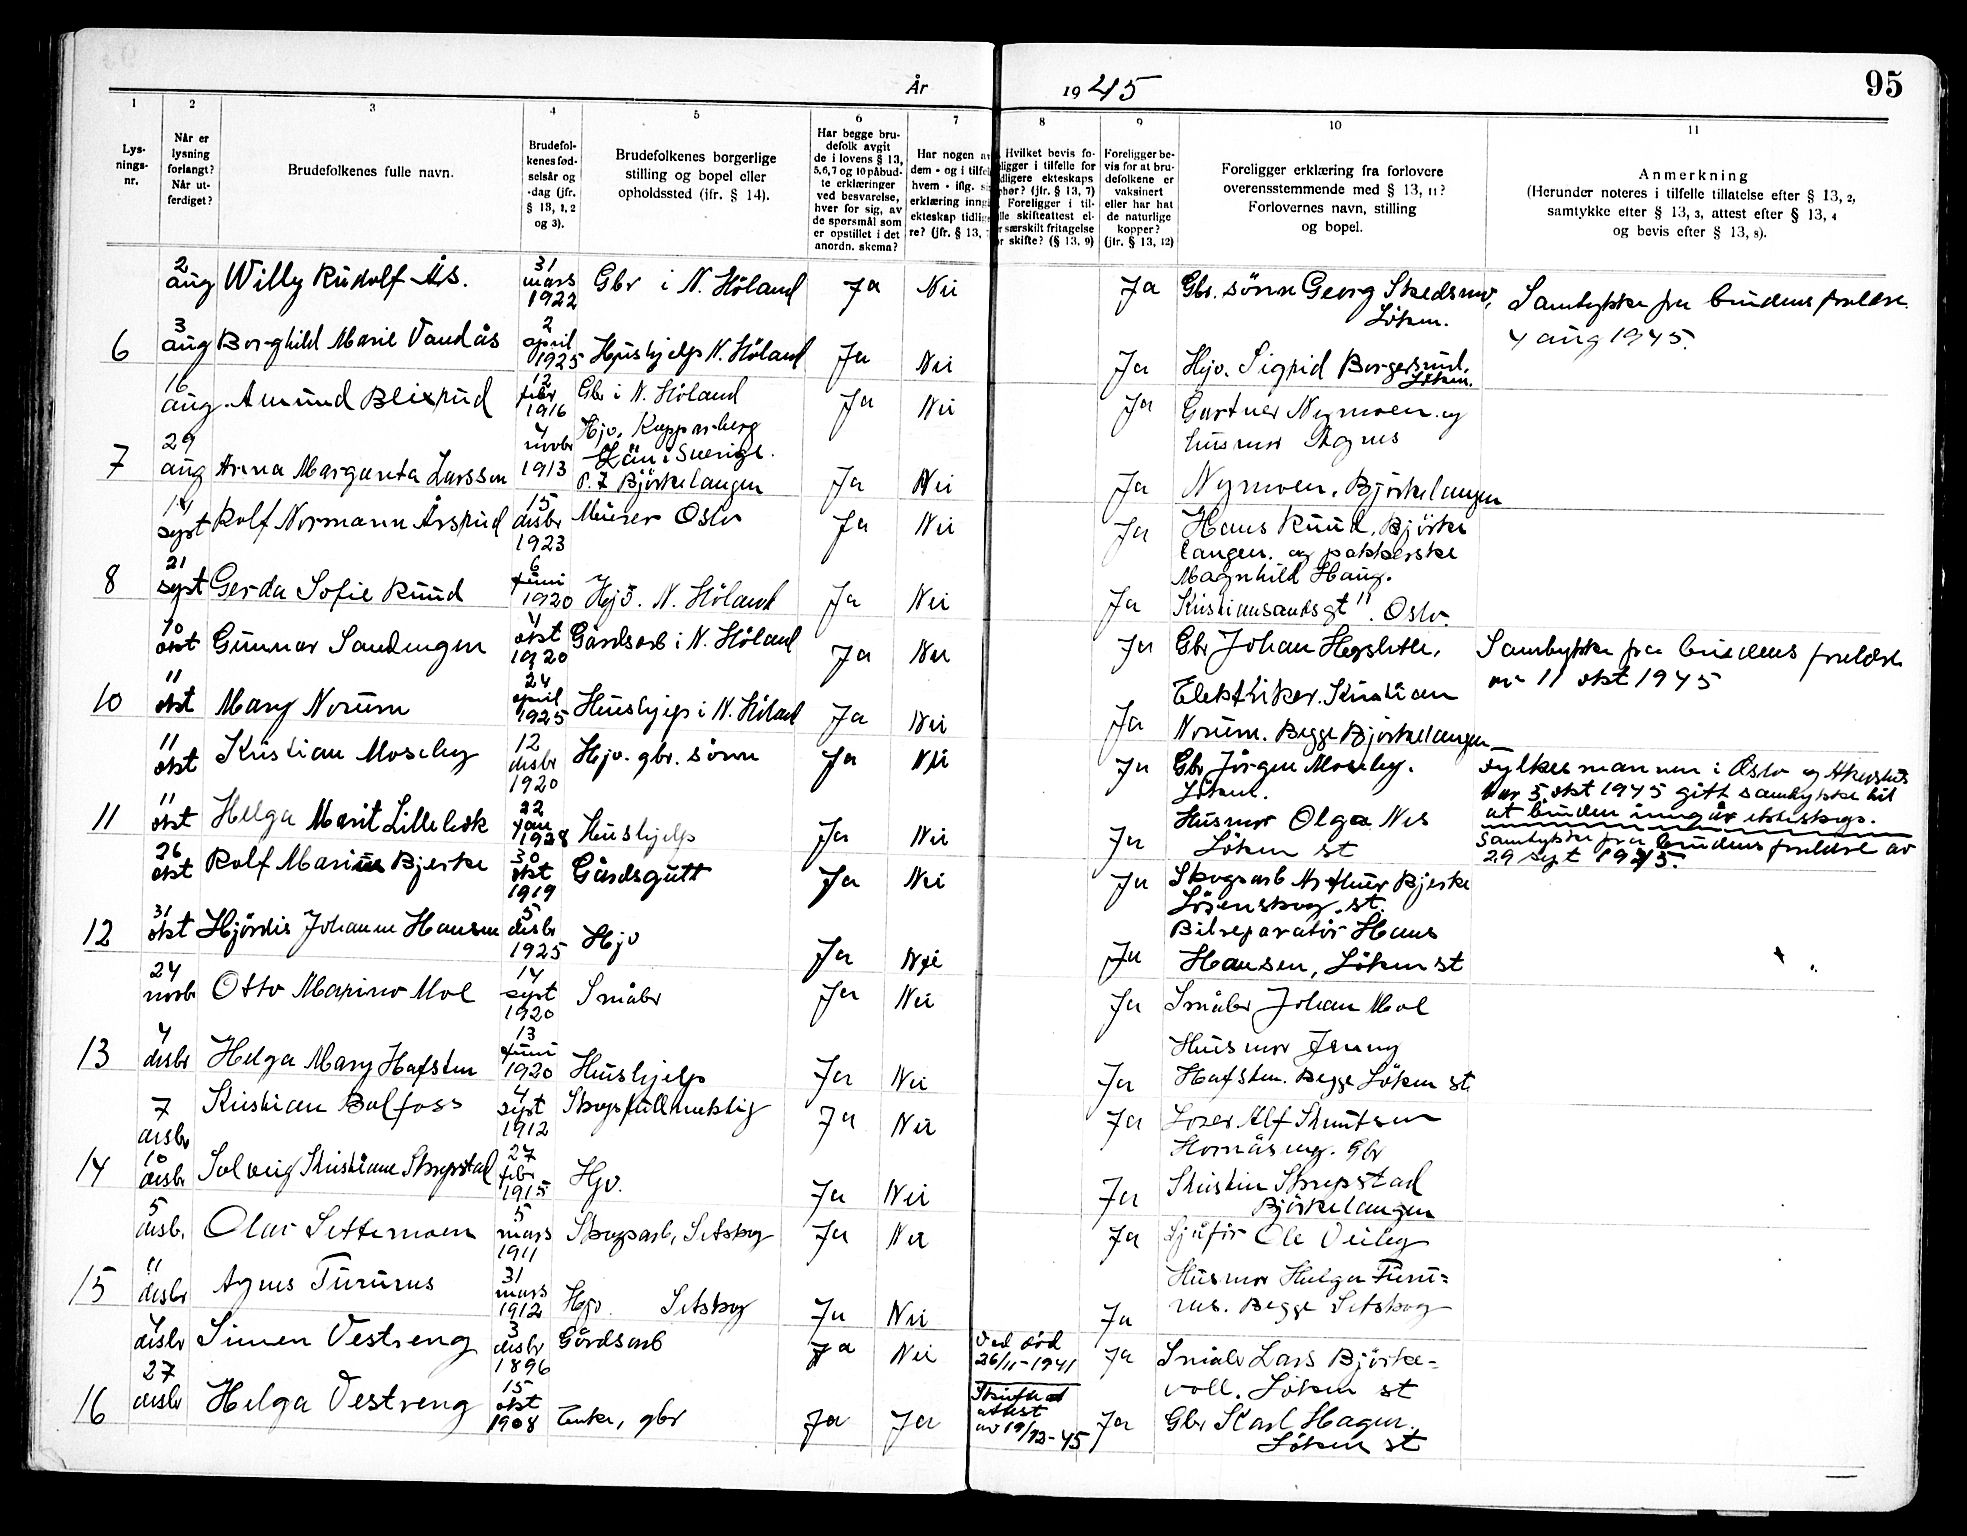 År 1945
95
1 2 3 4 5 6 7 8 9 10 11
Lys-
nings-
nr.
Når er
lysning
forlangt?
Når ut-
ferdiget?
Brudefolkenes fulle navn.
Brudefol-
kenes fød-
selsår og
-dag (jfr.
§ 13, 1, 2
og 3).
Brudefolkenes borgerlige
stilling og bopel eller
opholdssted (jfr. § 14).
Har begge bru-
defolk avgit
de i lovens § 13,
5,6,7 og 10 påbud-
te erklæringer
ved besvarelse,
hver for sig, av
de spørsmål som
er opstillet i det
anordn. skema?
Har nogen av
dem - og i tilfelle
hvem - iflg.
erklæring inngått
ekteskap tidlige-
re? (jfr. § 13,
Hvilket bevis fo-
ligger i tilfelle for
dligere ekteskaps
phør? (jfr. § 13, 7)
Foreligger i til-
lle skifteattest el-
r særskilt fritagelse
r skifte? (§ 13, 9)
Foreligger be-
vis for at bru-
defolkene er
vaksinert
eller har hat
de naturlige
kopper?
(jfr. § 13, 12)
Foreligger erklæring fra forlovere
overensstemmende med § 13, 11?
Forlovernes navn, stilling
og bopel.
Anmerkning
(Herunder noteres i tilfelle tillatelse efter § 13, 2,
samtykke efter § 13, 3, attest efter § 13, 4
og bevis efter § 13, 8).
2 aug Willy Rudolf Ås. 31 mars 1922 Gbr i N. Höland Ja Nei Ja Gbr. sönn Georg Skedsmo, Löken. Samtykke fra brudens foreldre
4 aug 1945.
6 3 aug Borghild Marie Vandås 2 april 1925 Hushjelp N. Höland Ja Nei Ja Hjv. Sigrid Borgersrud, Löken.
16 aug. Amund Blixrud 12 febr 1916 Gbr i N. Höland Ja Nei Ja Gartner Nymoen og
husmor Agnes
7 29 aug Anna Margareta Larsson 4 novbr 1913 Hjv. Kopparberg
Län i Sverige.
p.t Björkelangen Ja Nei Ja Nymoen. Björkelangen
14 sept Rolf Normann Årsrud 15 desbr 1923 Murer Oslo Ja Nei Ja Hans Ruud, Björke
langen. og pakkerske
Magnhild Haug.
8 21 sept Gerda Sofie Ruud 6 juni 1920 Hjv. N. Höland Ja Nei Ja Kristiansandsgt 11. Oslo.
10 okt Gunnar Sandengen 4 okt 1920 Gårdsarb i N. Höland Ja Nei Ja Gbr Johan Hegsletten, Samtykke fra brudens foreldre
av 11 okt 1945
10 11 okt Mary Norum 24 april 1925 Hushjelp i N. Höland Ja Nei Ja Elektriker. Kristian
Norum. Begge Björkelangen
11 okt Kristian Moseby 12 desbr 1920 Hjv. gbr. sönn Ja Nei Ja Gbr Jörgen Moseby.
Löken. Fylkesmannen i Oslo og Akershus
har 5 okt 1945 gitt samtykke til
at bruden inngår ekteskap.
11 11 okt Helga Marit Lillebek 22 jan 1928 Hushjelp Ja Nei Ja Husmor Olga Nes
Löken st Samtykke fra brudens foreldre av
29 sept 1945.
26 okt Rolf Marius Bjerke 30 okt 1919 Gårdsgutt Ja Nei Ja Skogsarb Arthur Bjerke
st.
12 31 okt Hjördis Johanne Hansen 5 desbr 1925 Hjv Ja Nei Ja Bilreparatör Hans
Hansen, Löken st
24 novbr Otto Marino Moe 14 sept 1920 Småbr Ja Nei Ja Småbr Johan Moe
13 4 desbr Helga Mary Hafsten 13 juni 1920 Hushjelp Ja Nei Ja Husmor Jenny
Hafsten. Begge Löken st.
7 desbr Kristian Bolfoss 4 sept 1912 Skogsfullmektig Ja Nei Ja Alf Knutsen
Hornåseng. Gbr
14 10 desbr Solveig Kristiane Skogstad 27 febr 1915 Hjv. Ja Nei Ja Kristian Skogstad
Björkelangen
5 desbr. Olav Settemoen 5 mars 1911 Skogsarb, Setskog Ja Nei Ja Sjåför Ole Vilberg
15 11 desbr Agnes Tururus 31 mars 1912 Hjv. Setskog Ja Nei Ja Husmor Helga Turu-
rus. Begge Setskog
4 desbr Simen Vestreng 3 desbr 1896 Gårdsarb Ja Nei Ved död
26/11-1941 Ja Småbr Lars Björke-
voll. Löken st
16 27 desbr Helga Vestreng 15 okt 1908 Enke, gbr Ja Ja Skifte
attest
av 19/12-45 Ja Gbr Karl Hagen,
Löken st